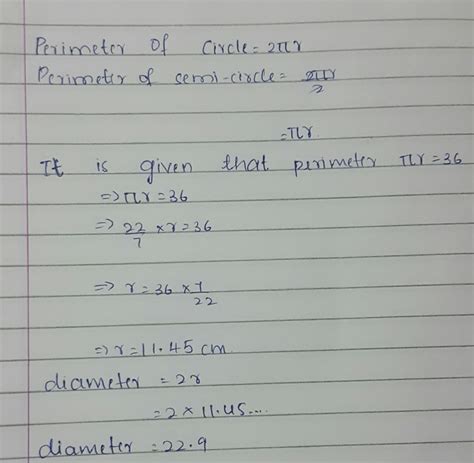 Perimeter of Circle = 2πr
Perimeter of semi-circle = 2πr/2
= πr
It is given that perimeter πr = 36
=> πr = 36
=> 22/7 × r = 36
=> r = 36 × 7/22
=> r = 11.45 cm
diameter = 2r
= 2 × 11.45....
diameter = 22.9